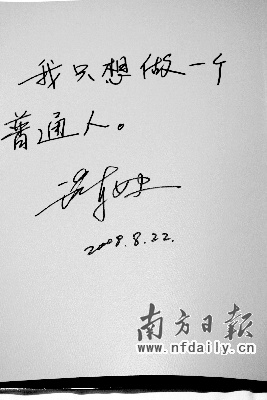 我只想做一个
普通人。
2009.8.22.
南方日報
www.nfdaily.cn